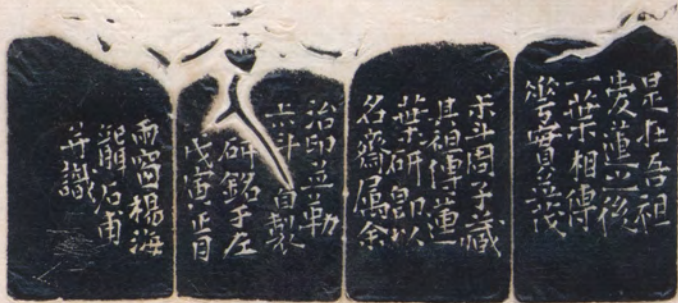 是在吾祖
愛蓮之後
一葉相傳
華實並茂
斗周子藏
其祖傳蓮
葉研即以
名齋属余
治印並勒
斗自製
研銘于左
戊寅正月
雨窗楊海
龍石甫
并識